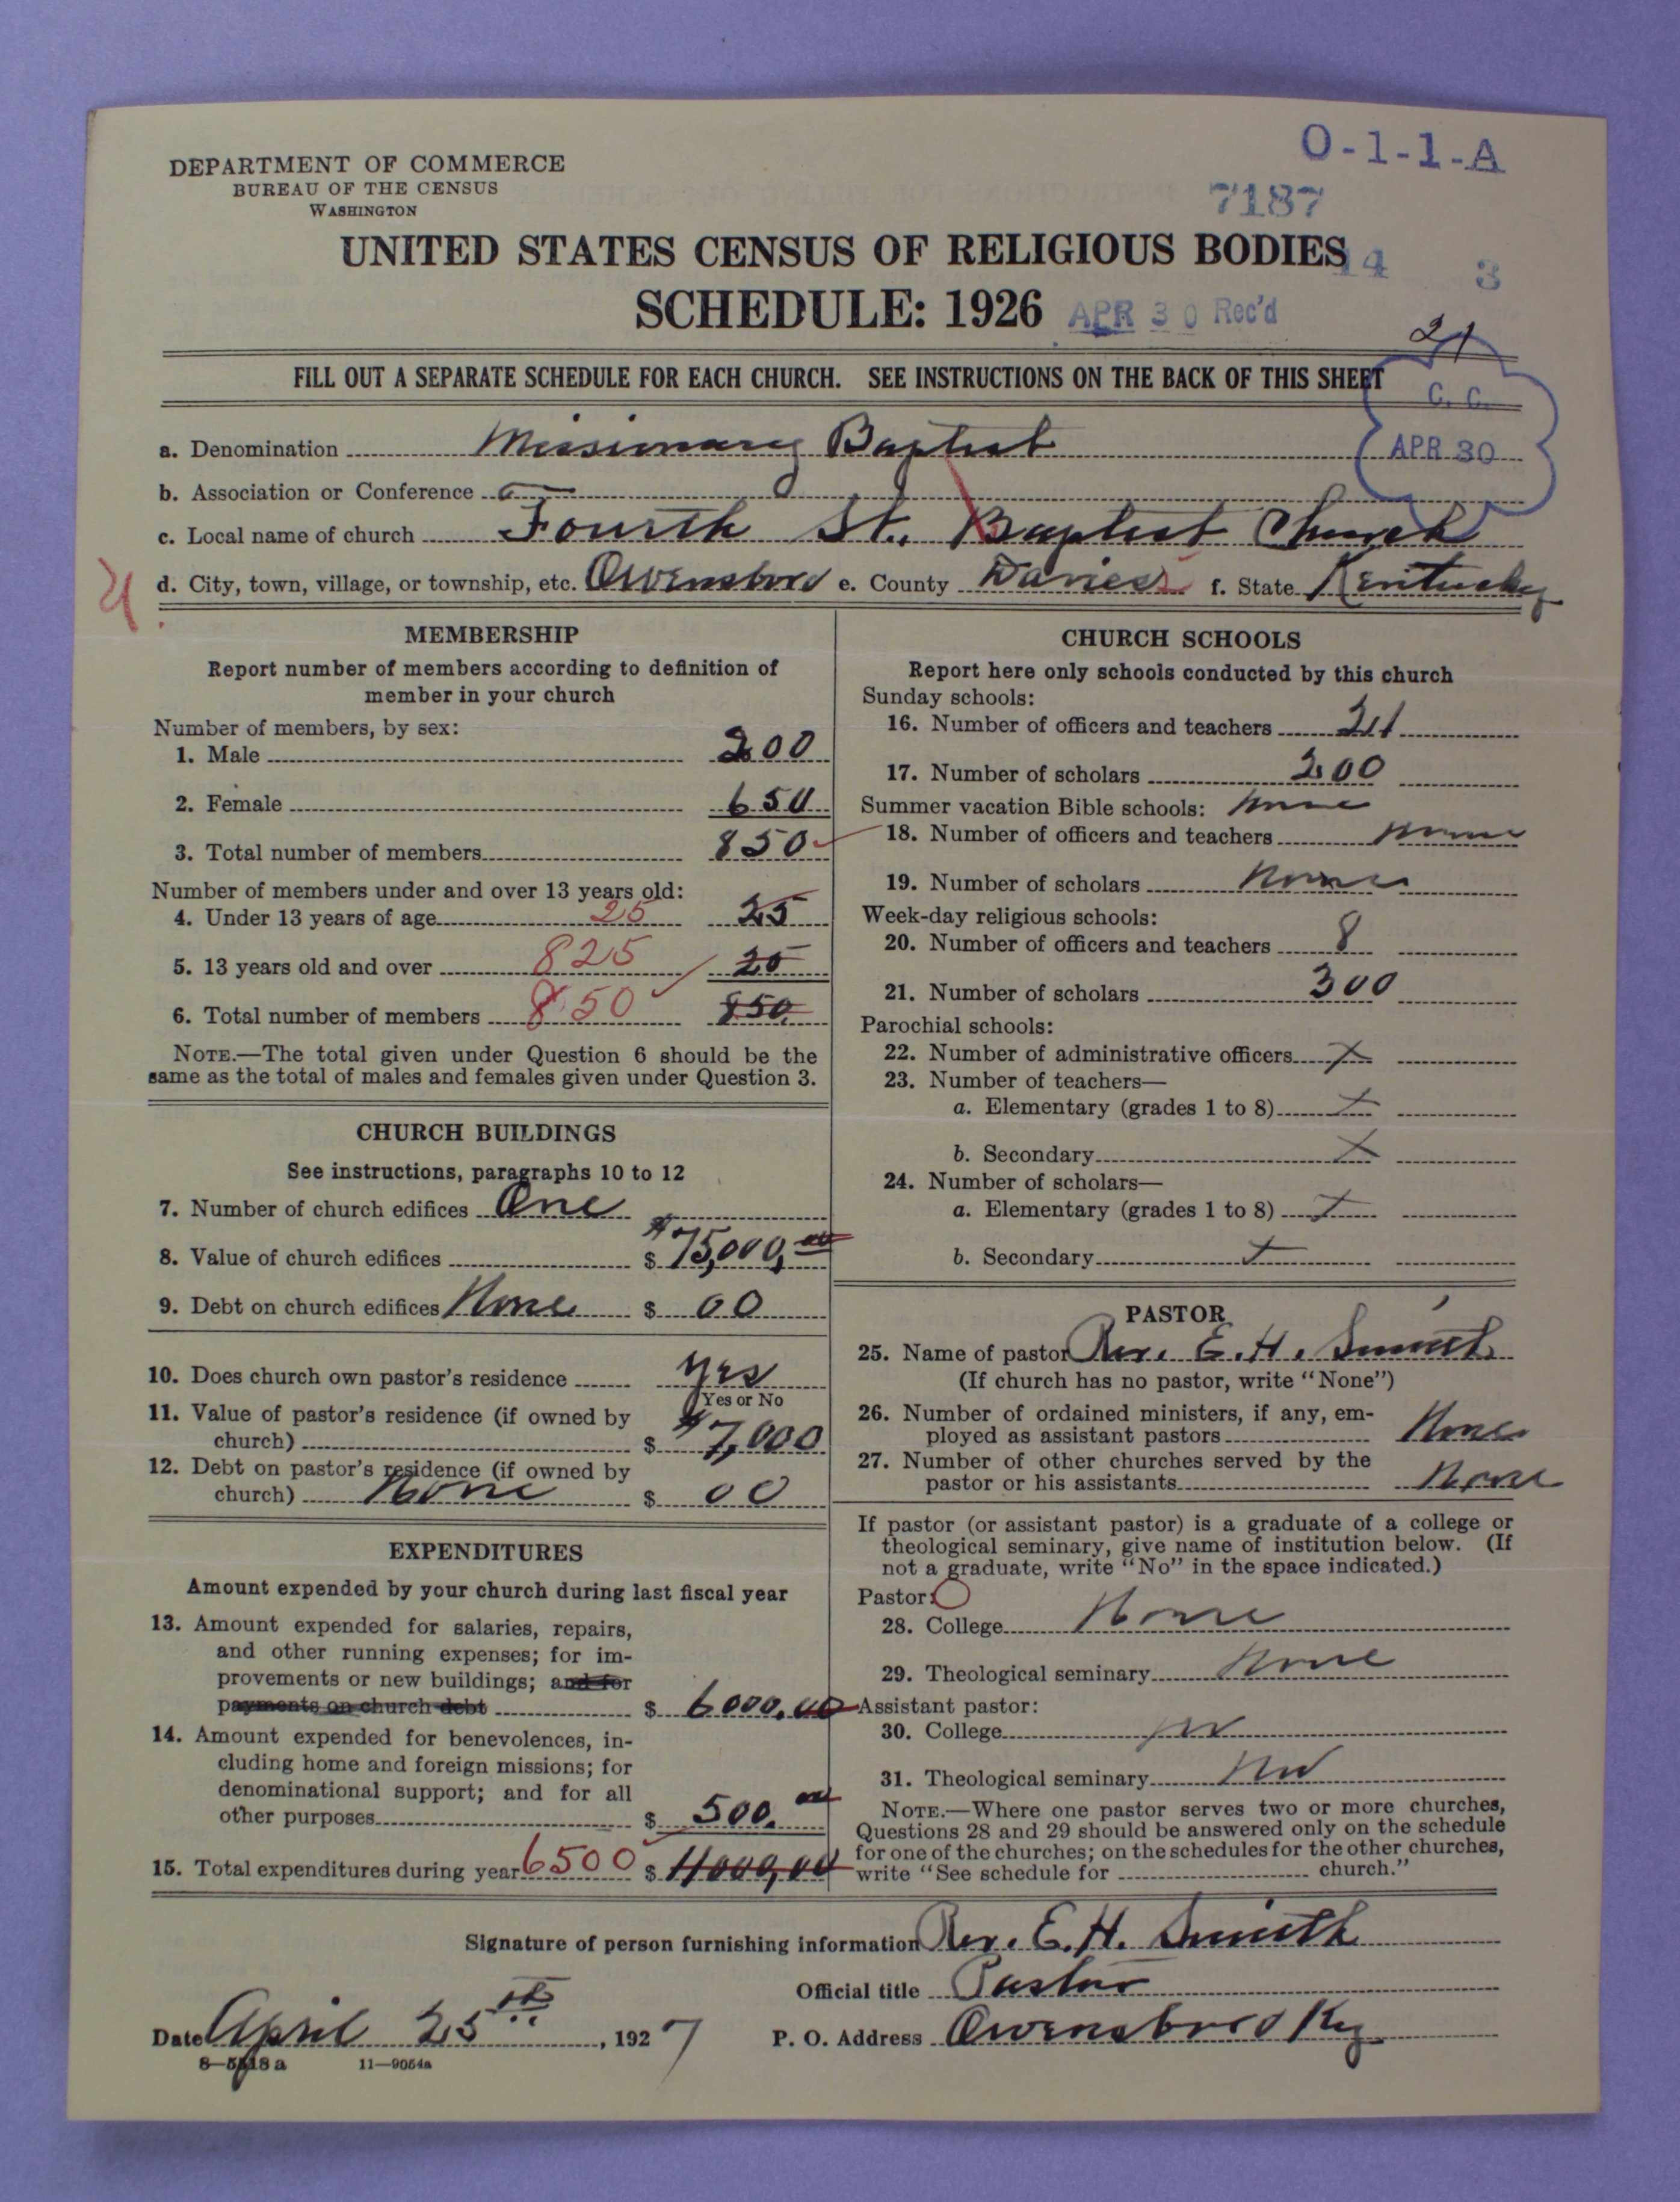 O-1-1-A
DEPARTMENT OF COMMERCE
BUREAU OF THE CENSUS
WASHINGTON
7187
UNITED STATES CENSUS OF RELIGIOUS BODIES
14 3
SCHEDULE: 1926 APR 30 Rec'd
21
FILL OUT A SEPARATE SCHEDULE FOR EACH CHURCH. SEE INSTRUCTIONS ON THE BACK OF THIS SHEET
C. C.
APR 30
a. Denomination Missionary Baptist
b. Association or Conference
c. Local name of church Fourth St. Baptist Church
d. City, town, village, or township, etc. Owensboro e. County Daviess f. State Kentucky
MEMBERSHIP
Report number of members according to definition of
member in your church
Number of members, by sex:
1. Male 200
2. Female 650
3. Total number of members 850
Number of members under and over 13 years old:
4. Under 13 years of age 25 25
5. 13 years old and over 825 25
6. Total number of members 850 850
NOTE.—The total given under Question 6 should be the
same as the total of males and females given under Question 3.
CHURCH BUILDINGS
See instructions, paragraphs 10 to 12
7. Number of church edifices One
8. Value of church edifices $ $75,000,00
9. Debt on church edifices None $ 00
10. Does church own pastor's residence yes
Yes or No
11. Value of pastor's residence (if owned by
church) $ $7,000
12. Debt on pastor's residence (if owned by
church) None $ 00
EXPENDITURES
Amount expended by your church during last fiscal year
13. Amount expended for salaries, repairs,
and other running expenses; for im-
provements or new buildings; and for
payments on church debt $ 6000.00
14. Amount expended for benevolences, in-
cluding home and foreign missions; for
denominational support; and for all
other purposes $ 500.00
15. Total expenditures during year 6500 $ 11000,00
CHURCH SCHOOLS
Report here only schools conducted by this church
Sunday schools:
16. Number of officers and teachers 21
17. Number of scholars 200
Summer vacation Bible schools: none
18. Number of officers and teachers none
19. Number of scholars none
Week-day religious schools:
20. Number of officers and teachers 8
21. Number of scholars 300
Parochial schools:
22. Number of administrative officers x
23. Number of teachers—
a. Elementary (grades 1 to 8) x
b. Secondary x
24. Number of scholars—
a. Elementary (grades 1 to 8) x
b. Secondary x
PASTOR
25. Name of pastor Rev. E. H. Smith
(If church has no pastor, write "None")
26. Number of ordained ministers, if any, em-
ployed as assistant pastors None
27. Number of other churches served by the
pastor or his assistants None
If pastor (or assistant pastor) is a graduate of a college or
theological seminary, give name of institution below. (If
not a graduate, write "No" in the space indicated.)
Pastor:
28. College None
29. Theological seminary None
Assistant pastor:
30. College no
31. Theological seminary no
NOTE.—Where one pastor serves two or more churches,
Questions 28 and 29 should be answered only on the schedule
for one of the churches; on the schedules for the other churches,
write "See schedule for church."
Signature of person furnishing information Rev. E. H. Smith
Official title Pastor
Date April 25th, 1927 P. O. Address Owensboro Ky
8—5518 a 11—9054a